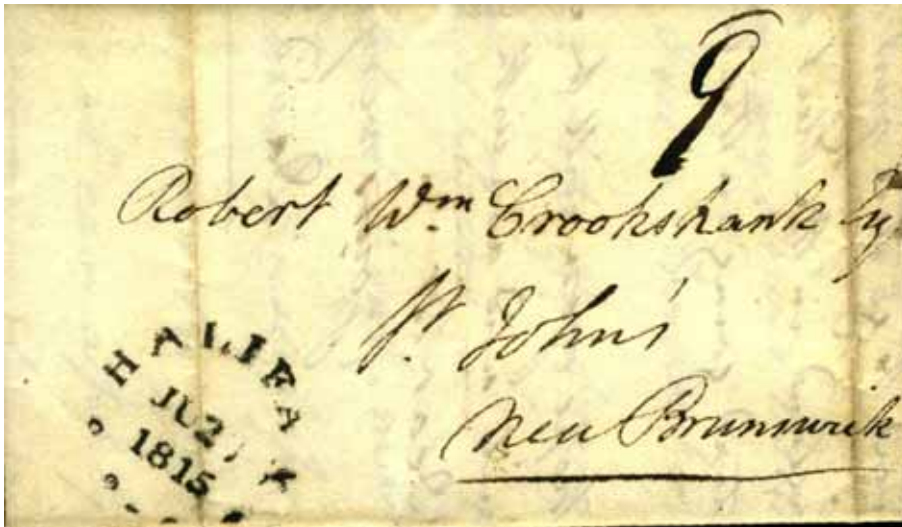 9
Robert Wm Crookshank Esq.
St. John's
New Brunswick
HALIFAX
JU 2
1815